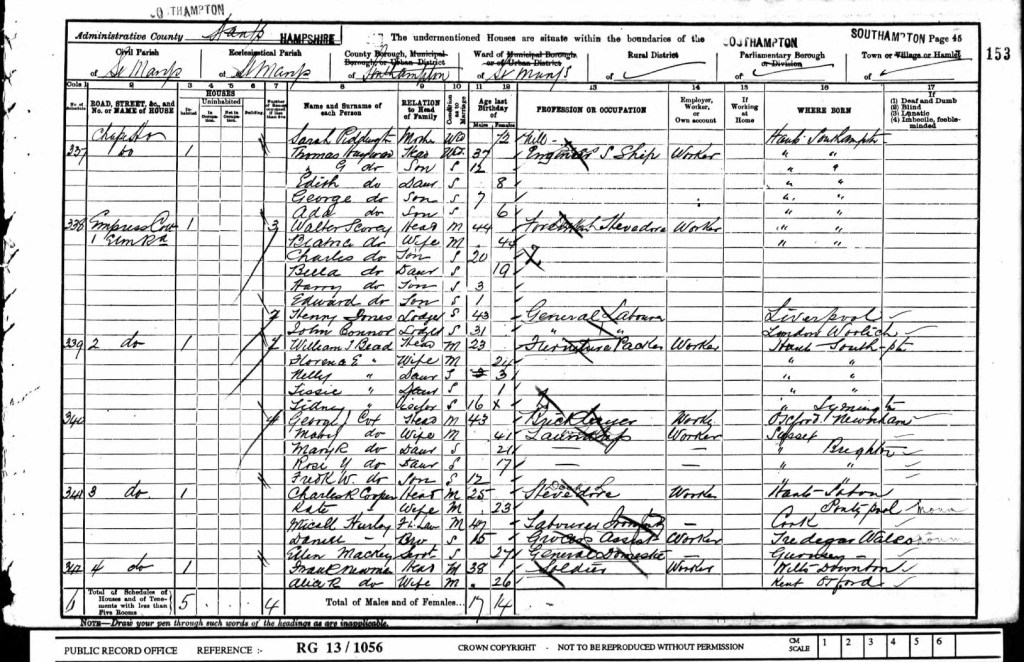 SOUTHAMPTON
Administrative County Hants HAMPSHIRE The undermentioned Houses are situate within the boundaries of the SOUTHAMPTON SOUTHAMPTON Page 45
153
Civil Parish Ecclesiastical Parish County Borough, Municipal Borough, or Urban District Ward of Municipal Borough or of Urban District Rural District Parliamentary Borough or Division Town or Village or Hamlet
of St Marys of St Marys of Southampton of St Marys of of of
Cols 1 2 3 4 5 6 7 8 9 10 11 12 13 14 15 16 17
No. of Schedule ROAD, STREET, &c., and No. or NAME of HOUSE HOUSES Inhabited Uninhabited In Occupation Not in Occupation Building Number of Rooms occupied if less than five Name and Surname of each Person RELATION to Head of Family Condition as to Marriage Age last Birthday of Males Females PROFESSION OR OCCUPATION Employer, Worker, or Own account If Working at Home WHERE BORN If (1) Deaf and Dumb (2) Blind (3) Lunatic (4) Imbecile, feeble-minded
Sarah Mother Wid 72 Hants Southampton
337 do 1 Thomas Head Wid 37 Engineer S Ship Worker " "
" G do Son S 12 " "
Edith do Daur S 8 " "
George do Son S 7 " "
Ada do Son S 6 " "
338 Empress 1 3 Walter Scorey Head M 44 Stevedore Worker " "
1 Elm Rd Beatrice do Wife M 44 " "
Charles do Son S 20
Bella do Daur S 19
Harry do Son S 3
Edward do Son S 1
2 Henry Jones Lodger S 43 General Labourer Liverpool
John Connor Lodger S 31 " " London Woolich
339 2 do 1 William J Bead Head M 23 Packer Worker Hants South-pton
Florence E " Wife M 24 " "
Nelly " Daur S 3 " "
Tissie " Daur S 1 " "
Sidney " Visitor S 16 " Lymington
340 4 George Cox Head M 43 Bricklayer Worker Oxford Newnham
Mary do Wife M 41 Laundress Worker Sussex
Mary R do Daur S 21 — — " Brighton
Rose Y do Daur S 17 — — " "
Fredk W. do Son S 12 " "
341 3 do 1 Charles R Cooper Head M 25 Stevedore Worker Hants Soton
Kate " Wife M 23 Pontypool Mon
Micall Hurley Fr Law M 47 Labourer — Cork
Daniel — Bro S 15 Grocers Assist Worker Tredegar Wales
Ellen Mackey Servt S 27 General Domestic — Guernsey
342 4 do 1 Frank Newman Head M 38 Soldier Worker Wilts Downton
Alice R do Wife M 26 Kent Otford
6 Total of Schedules of Houses and of Tenements with less than Five Rooms 5 4 Total of Males and of Females... 17 14
NOTE—Draw your pen through such words of the headings as are inapplicable.
PUBLIC RECORD OFFICE REFERENCE :- RG 13 / 1056 CROWN COPYRIGHT - NOT TO BE REPRODUCED WITHOUT PERMISSION CM SCALE 1 2 3 4 5 6